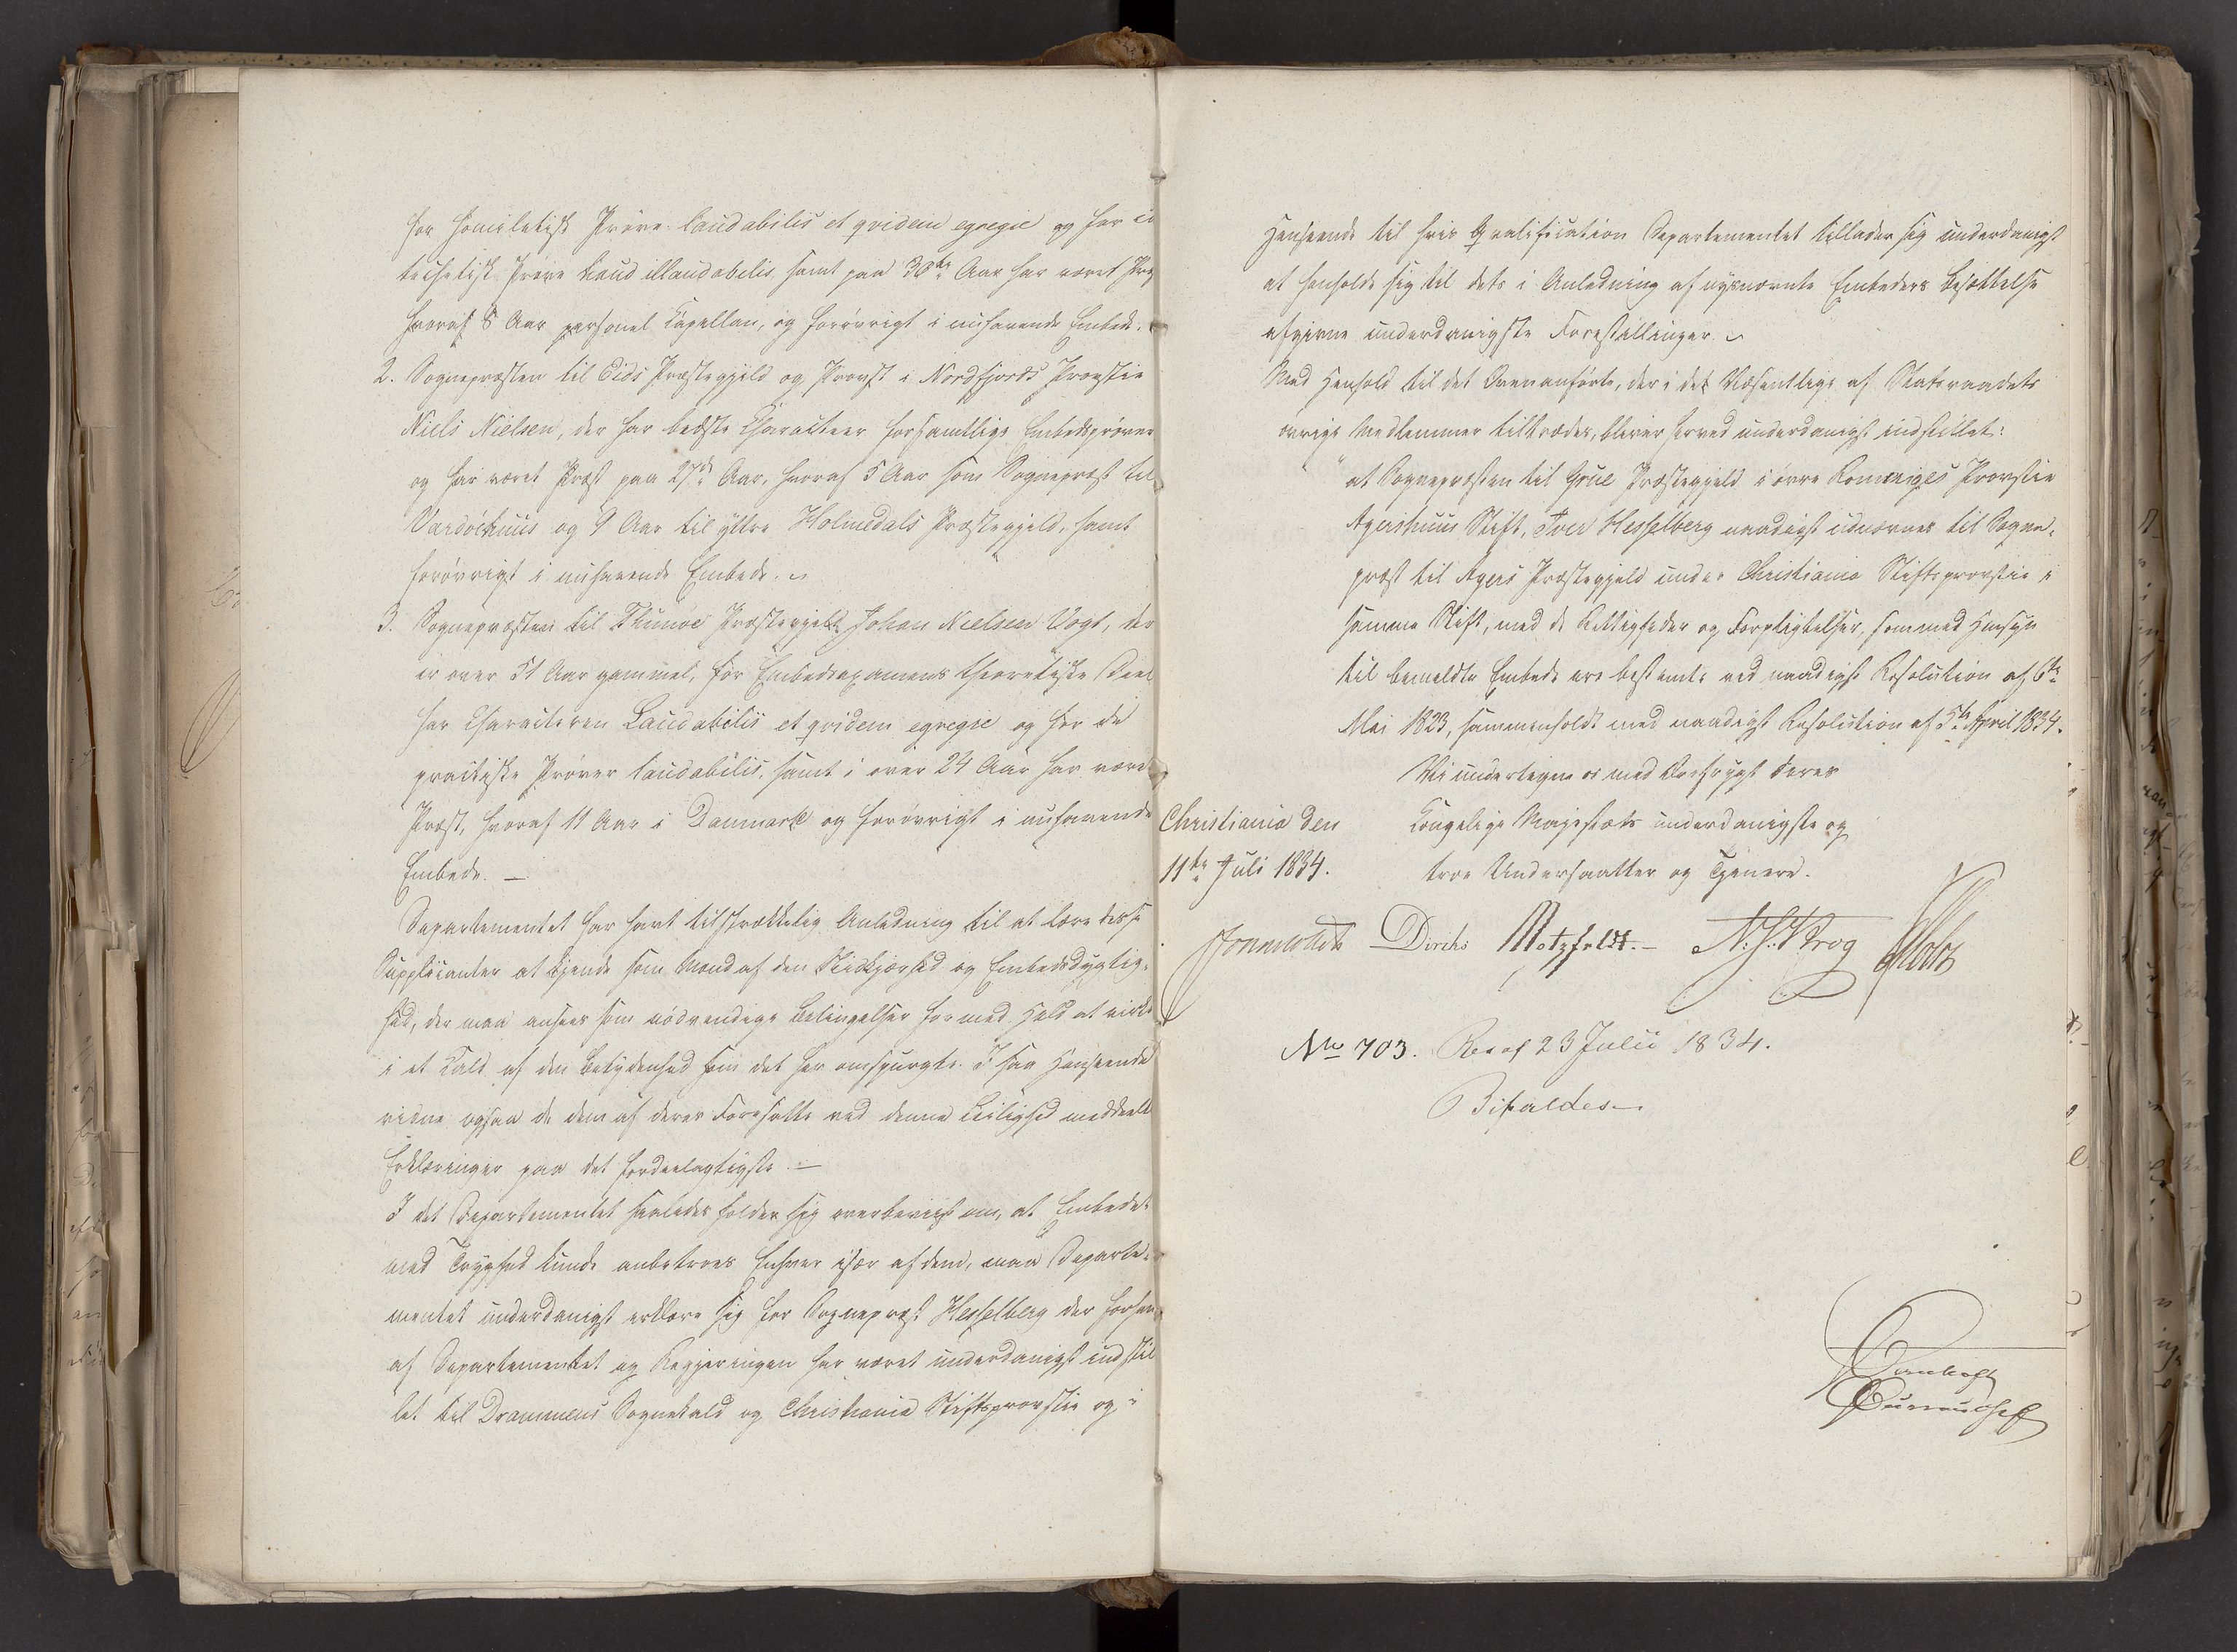 for homiletisk Prøve laudabilis et qvidem egregie og for ca
techetisk Prøve haud illaudabilis, samt paa 30te Aar har været Præst
hvoraf 8 Aar personel Capellan, og forøvrigt i nuhavende Embede.
2. Sognepræsten til Eids Præstegjeld og Provst i Nordfjords Provstie
Niels Nielsen, der har bedste Characteer for samtlige Embedsprøver
og har været Præst paa 27de Aar, hvoraf 5 Aar som Sognepræst til
Vardöehuus og 9 Aar til yttre Holmedals Præstegjeld, samt
forøvrigt i nuhavende Embede.
3. Sognepræsten til Præstegjeld Johan Nielsen Vogt, der
er over 51 Aar gammel, for Embedsexamens theoretiske Deel
har Characteren Laudabilis et qvidem egregie og for de
practiske Prøver laudabilis, samt i over 24 Aar har været
Præst, hvoraf 11 Aar i Danmark og forøvrigt i nuhavende
Embede. –
Departementet har havt tilstrækkelig Anledning til at lære disse
Supplicanter at kjende som Mænd af den Retskjærhed og Embedsdygtig-
hed, der maa ansees som nødvendige Betingelser for med Held at virke
i et Kald af den Betydenhed som det her omspurgte. I saa Henseende
vidne ogsaa de dem af deres Foresatte ved denne Leilighed meddeelte
Erklæringer paa det fordeelagtigste. –
I det Departementet saaledes holder sig overbeviist om, at Embedet
med Tryghed kunde anbetroes Enhver især af dem, maa Departe-
mentet underdanigst erklære sig for Sognepræst Hesselberg der forhen
af Departementet og Regjeringen har været underdanigst indstil
let til Drammens Sognekald og Christiania Stiftsprovstie og i
Henseende til hvis Qvalification Departementet tillader sig underdanigst
at henholde sig til dets i Anledning af nysnævnte Embeders Besættelse
afgivne underdanigste Forestillinger.
Med Henhold til det Ovenanførte, der i det Væsentlige af Statsraadets
øvrige Medlemmer tiltrædes, bliver herved underdanigst indstillet:
"at Sognepræsten til Grue Præstegjeld i øvre Romeriges Provstie
Agershuus Stift, Iver Hesselberg naadigst udnævnes til Sogne-
præst til Agers Præstegjeld under Christiania Stiftsprovstie i
samme Stift, med de Rettigheder og Forpligtelser, som med Hensyn
til bemeldte Embede ere bestemte ved naadigst Resolution af 6te
Mai 1823, sammenholdt med naadigst Resolution af 5te April 1834.
Vi undertegne os med Ærefrygt Deres
Kongelige Majestæts underdanigste og
troe Undersaatter og Tjenere.
Christiania den
11te Juli 1834.
Diriks Motzfeldt. N. J. Krog
No 703. Res af 23 Julii 1834.
Bifaldes.